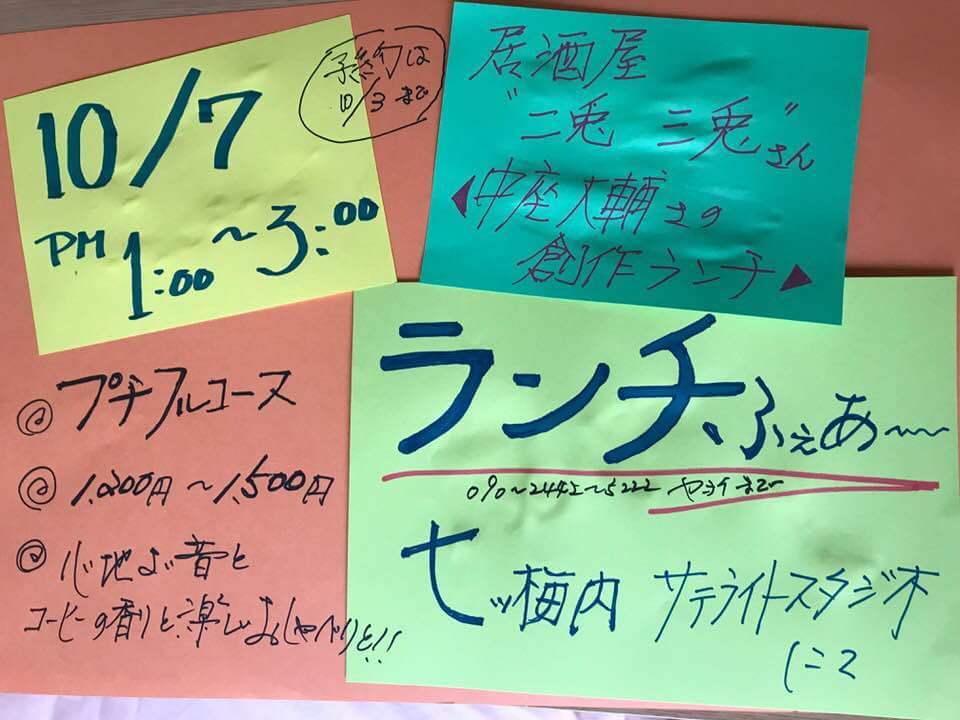 10/7
PM 1:00〜3:00
予約は
10/3まで
居酒屋
"二兎 三兎"さん
中座大輔さの
創作ランチ
ランチ、ふぇあ〜
090〜2442〜5222 ヤヨイまで
七ッ梅内 サテライトスタジオ
にて
@ プチフルコース
@ 1,200円〜1,500円
@ 心地よい音と
コーヒーの香りと、楽しいおしゃべりと!!